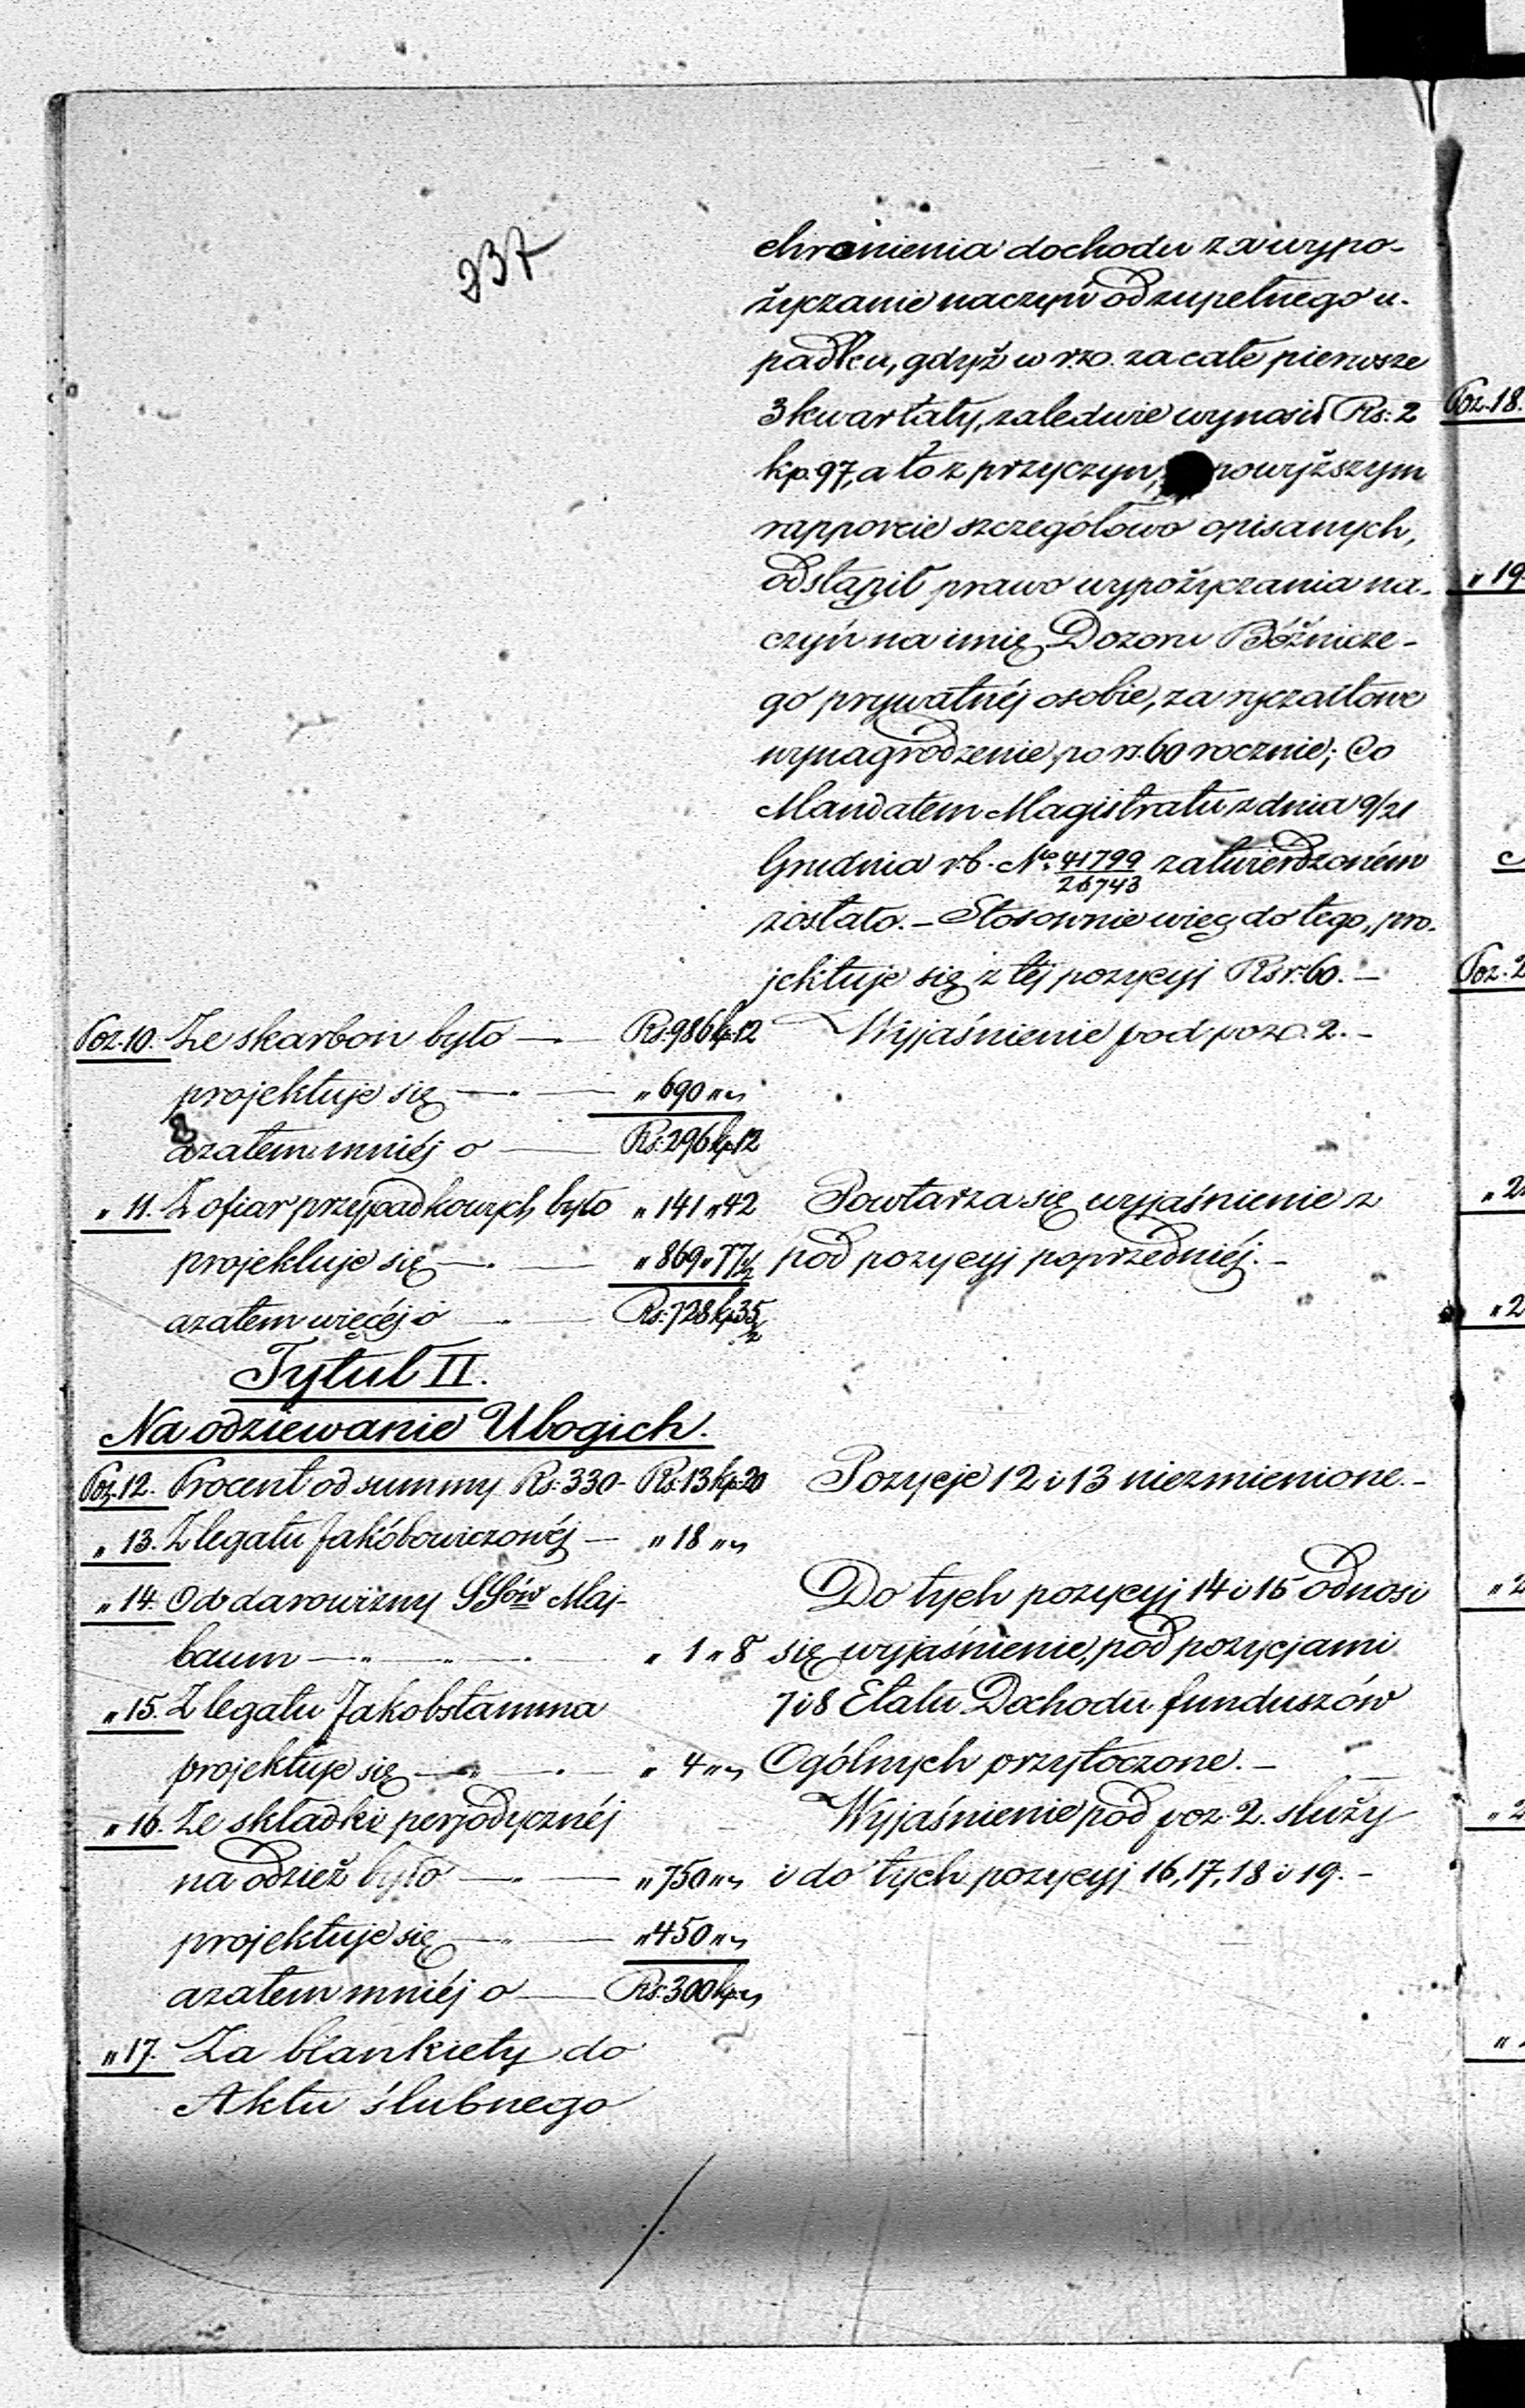 237
chronienia dochodu za wypo-
życzanie naczyń od zupełnego u-
padku, gdyż w r. zo. za całe pierwsze
3 kwartały, zaledwie wynosił Rs: 2
kp. 97, a to z przyczyn, powyższym
rapporcie szczegółowo opisanych,
odstąpił prawo wypożyczania na-
czyń na imię Dozoru Bóżnicze-
go prywatnéj osobie, za ryczałtowe
wynagrodzenie po rs. 60 rocznie; Co
Mandatem Magistratu z dnia 9/21
Grudnia r.b. No. 41799/26743 zatwierdzoném
zostało. – Stosownie więc do tego, pro-
jektuje się z téj pozycyi Rsr. 60. –
Poz. 10. Ze skarbon było — Rs: 986 kp. 12 Wyjaśnienie pod poz. 2. –
projektuje się — „ 690 „ „
azatem mniéj o — Rs: 296 kp. 12
„ 11. Z ofiar przypadkowych było „ 141 „ 42 Powtarza się wyjaśnienie z
projektuje się — „ 869 „ 77 1/2 pod pozycyi poprzedniéj. –
azatem więcéj o — Rs: 728 kp. 35 1/2
Tytuł II.
Na odziewanie Ubogich.
Poz. 12. Procent od summy Rs: 330 - Rs: 13 kp. 20 Pozycje 12 i 13 niezmienione. –
„ 13. Z legatu Jakóbowiczowéj — „ 18 „ „
„ 14. Od darowizny SSów Maj- Do tych pozycyj 14 i 15 odnosi
baum — „ 1 „ 8 się wyjaśnienie, pod pozycjami
„ 15. Z legatu Jakobstamma 7 i 8 Etatu Dochodu funduszów
projektuje się — „ 4 „ „ Ogólnych przytoczone. –
„ 16. Ze składki perjodycznéj Wyjaśnienie pod poz. 2. służy
na odzież było — „ 750 „ „ i do tych pozycyj 16, 17, 18 i 19. –
projektuje się — „ 450 „ „
azatem mniéj o — Rs: 300 kp. „
„ 17. Za blankiety do
Aktu ślubnego
Poz. 18.
„ 19.